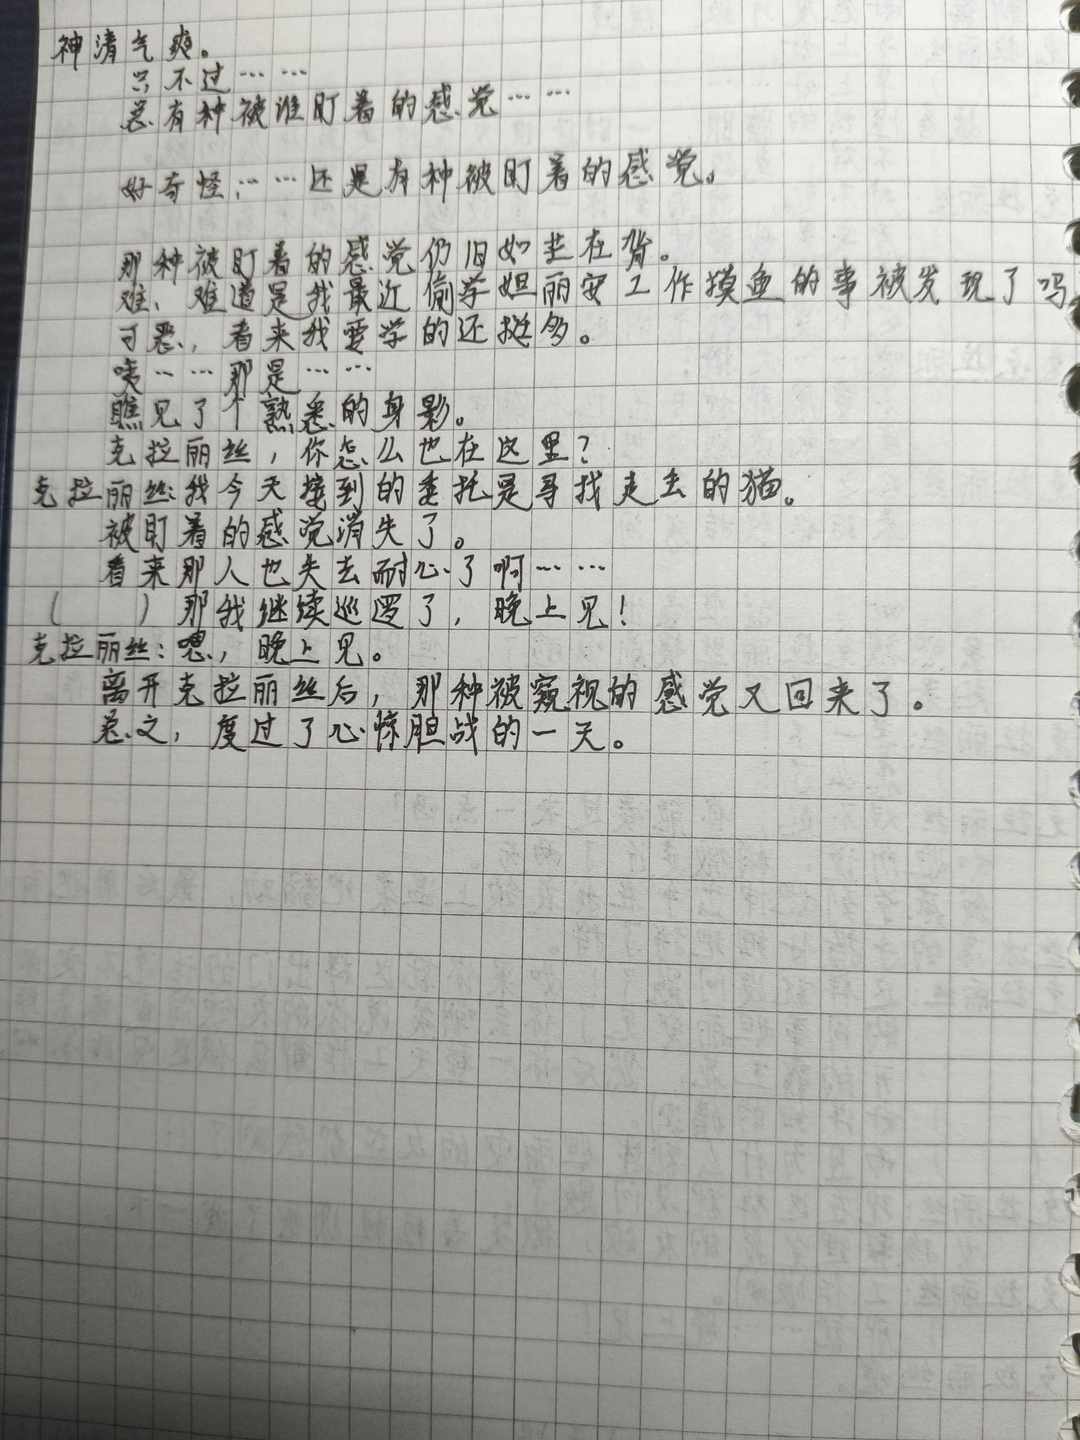 神清气爽。
只不过……
总有种被谁盯着的感觉……
好奇怪,……还是有种被盯着的感觉。
那种被盯着的感觉仍旧如芒在背。
难、难道是我最近偷学妲丽安工作摸鱼的事被发现了吗
可恶,看来我要学的还挺多。
咦……那是……
瞧见了个熟悉的身影。
克拉丽丝,你怎么也在这里?
克拉丽丝:我今天接到的委托是寻找走丢的猫。
被盯着的感觉消失了。
看来那人也失去耐心了啊……
( ) 那我继续巡逻了,晚上见!
克拉丽丝:嗯,晚上见。
离开克拉丽丝后,那种被窥视的感觉又回来了。
总之,度过了心惊胆战的一天。